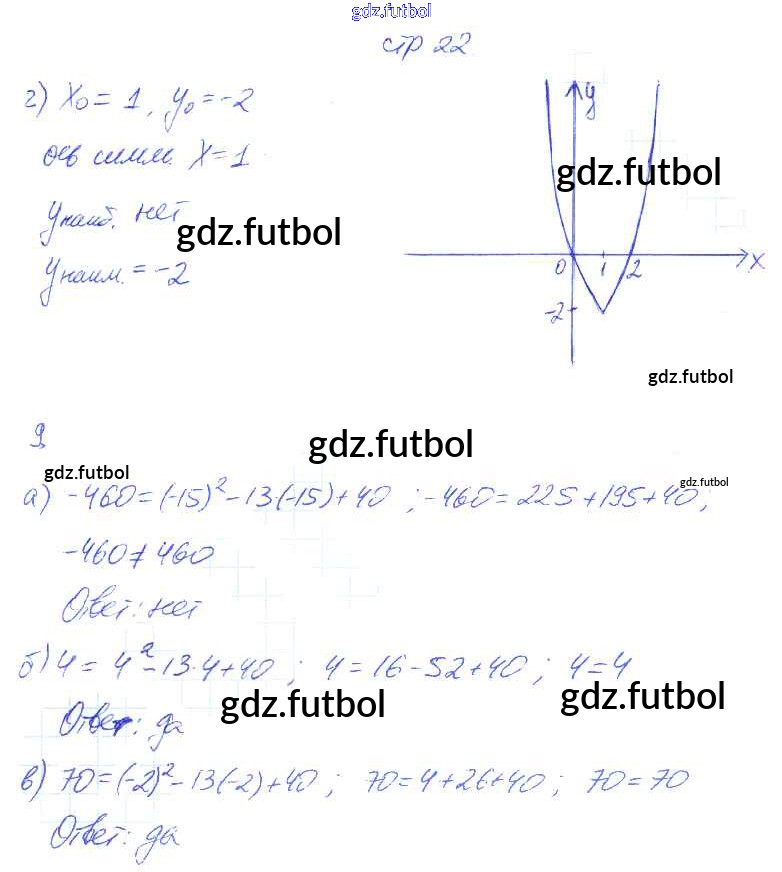 gdz.futbol
стр 22
г) x₀ = 1, y₀ = -2
ось симм. x = 1
gdz.futbol
y наиб. нет
gdz.futbol
y наим. = -2
y
0 1 2 x
-2
gdz.futbol
9
gdz.futbol
gdz.futbol
gdz.futbol
а) -460 = (-15)² - 13·(-15) + 40 ; -460 = 225 + 195 + 40 ;
-460 ≠ 460
Ответ: нет
б) 4 = 4² - 13·4 + 40 ; 4 = 16 - 52 + 40 ; 4 = 4
Ответ: да
gdz.futbol
gdz.futbol
в) 70 = (-2)² - 13(-2) + 40 ; 70 = 4 + 26 + 40 ; 70 = 70
Ответ: да